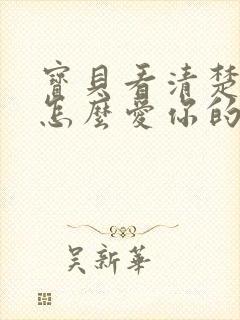 寶貝看清楚
怎麼愛你的
吳新華